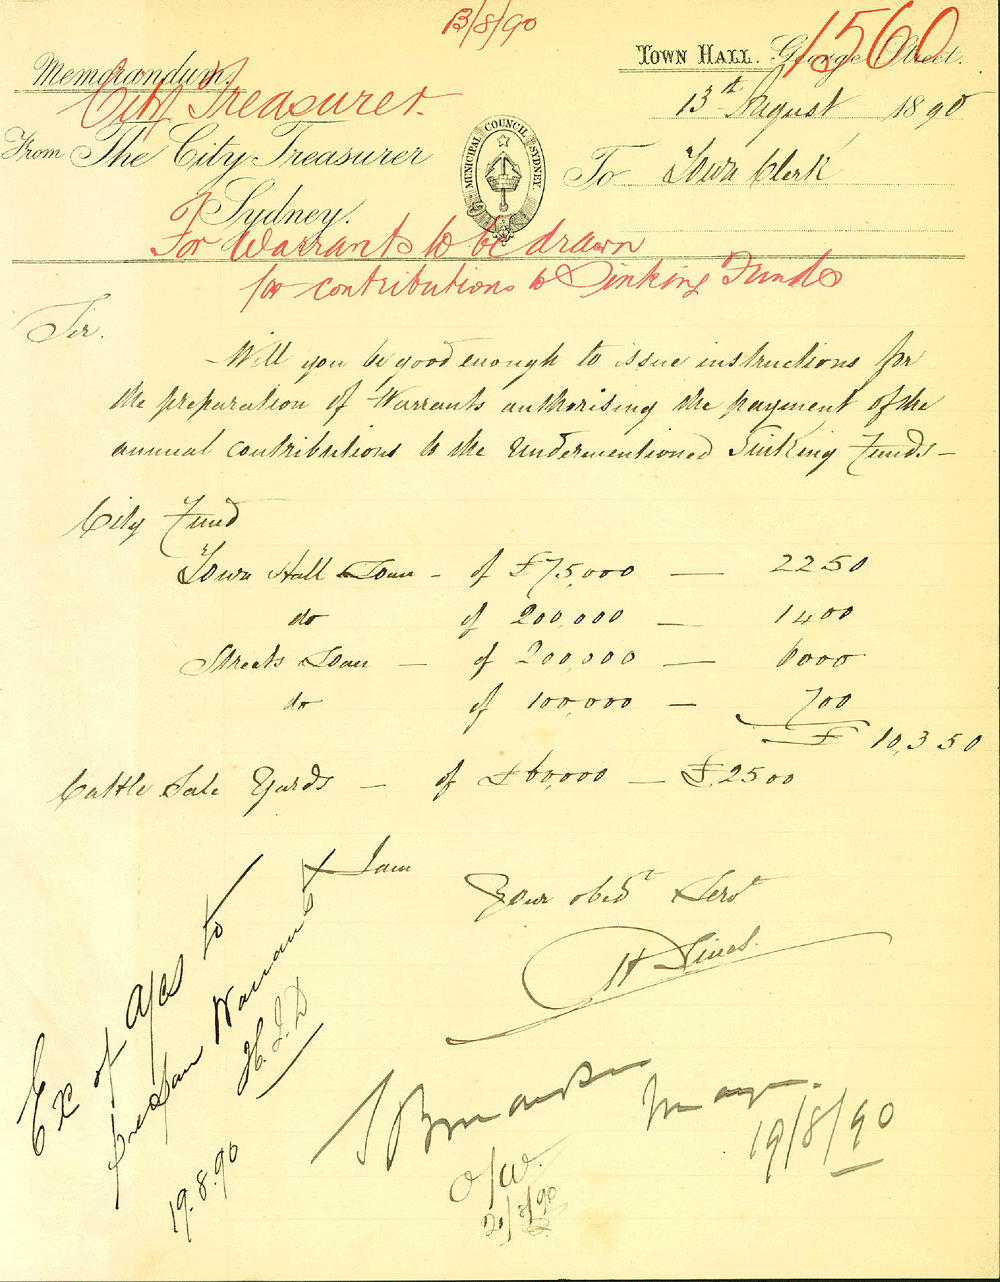 13/8/90
1560
TOWN HALL. George Street.
Memorandum.
City Treasurer.
13th August 1890
From The City Treasurer
Sydney.
MUNICIPAL COUNCIL SYDNEY.
To Town Clerk
For Warrants to be drawn
for contributions to Sinking Funds
Sir.
Will you be good enough to issue instructions for
the preparation of Warrants authorising the payment of the
annual contributions to the undermentioned Sinking Funds –
City Fund
Town Hall Loan - of £75,000 — 2250
do of 200,000 — 1400
Streets Loan — of 200,000 — 6000
do of 100,000 — 700
£ 10,350
Cattle Sale Yards — of £60,000 — £2500
I am
Your obedt Servt
Ex of A/cs to
prepare Warrants
H.J.D
19.8.90
Mayor.
19/8/90
O/W.
20/8/90